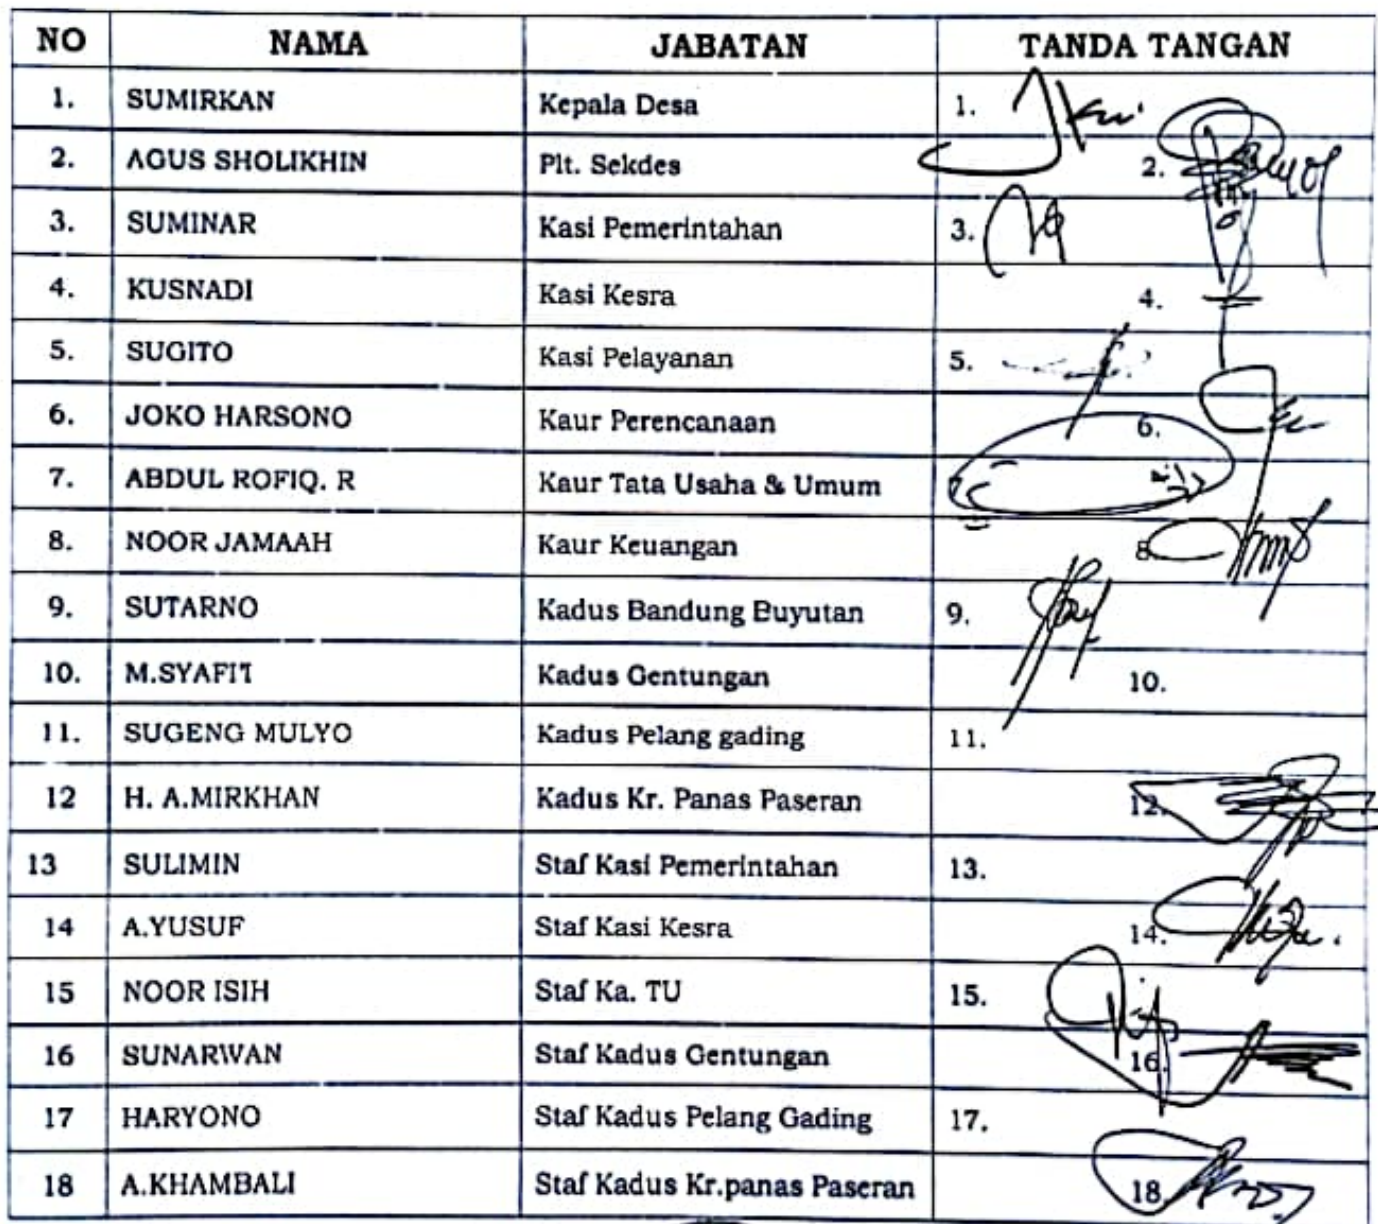 NO NAMA JABATAN TANDA TANGAN
1. SUMIRKAN Kepala Desa 1.
2. AGUS SHOLIKHIN Plt. Sekdes 2.
3. SUMINAR Kasi Pemerintahan 3.
4. KUSNADI Kasi Kesra 4.
5. SUGITO Kasi Pelayanan 5.
6. JOKO HARSONO Kaur Perencanaan 6.
7. ABDUL ROFIQ. R Kaur Tata Usaha & Umum
8. NOOR JAMAAH Kaur Keuangan 8.
9. SUTARNO Kadus Bandung Buyutan 9.
10. M.SYAFI'I Kadus Gentungan 10.
11. SUGENG MULYO Kadus Pelang gading 11.
12 H. A.MIRKHAN Kadus Kr. Panas Paseran 12.
13 SULIMIN Staf Kasi Pemerintahan 13.
14 A.YUSUF Staf Kasi Kesra 14.
15 NOOR ISIH Staf Ka. TU 15.
16 SUNARWAN Staf Kadus Gentungan 16.
17 HARYONO Staf Kadus Pelang Gading 17.
18 A.KHAMBALI Staf Kadus Kr.panas Paseran 18